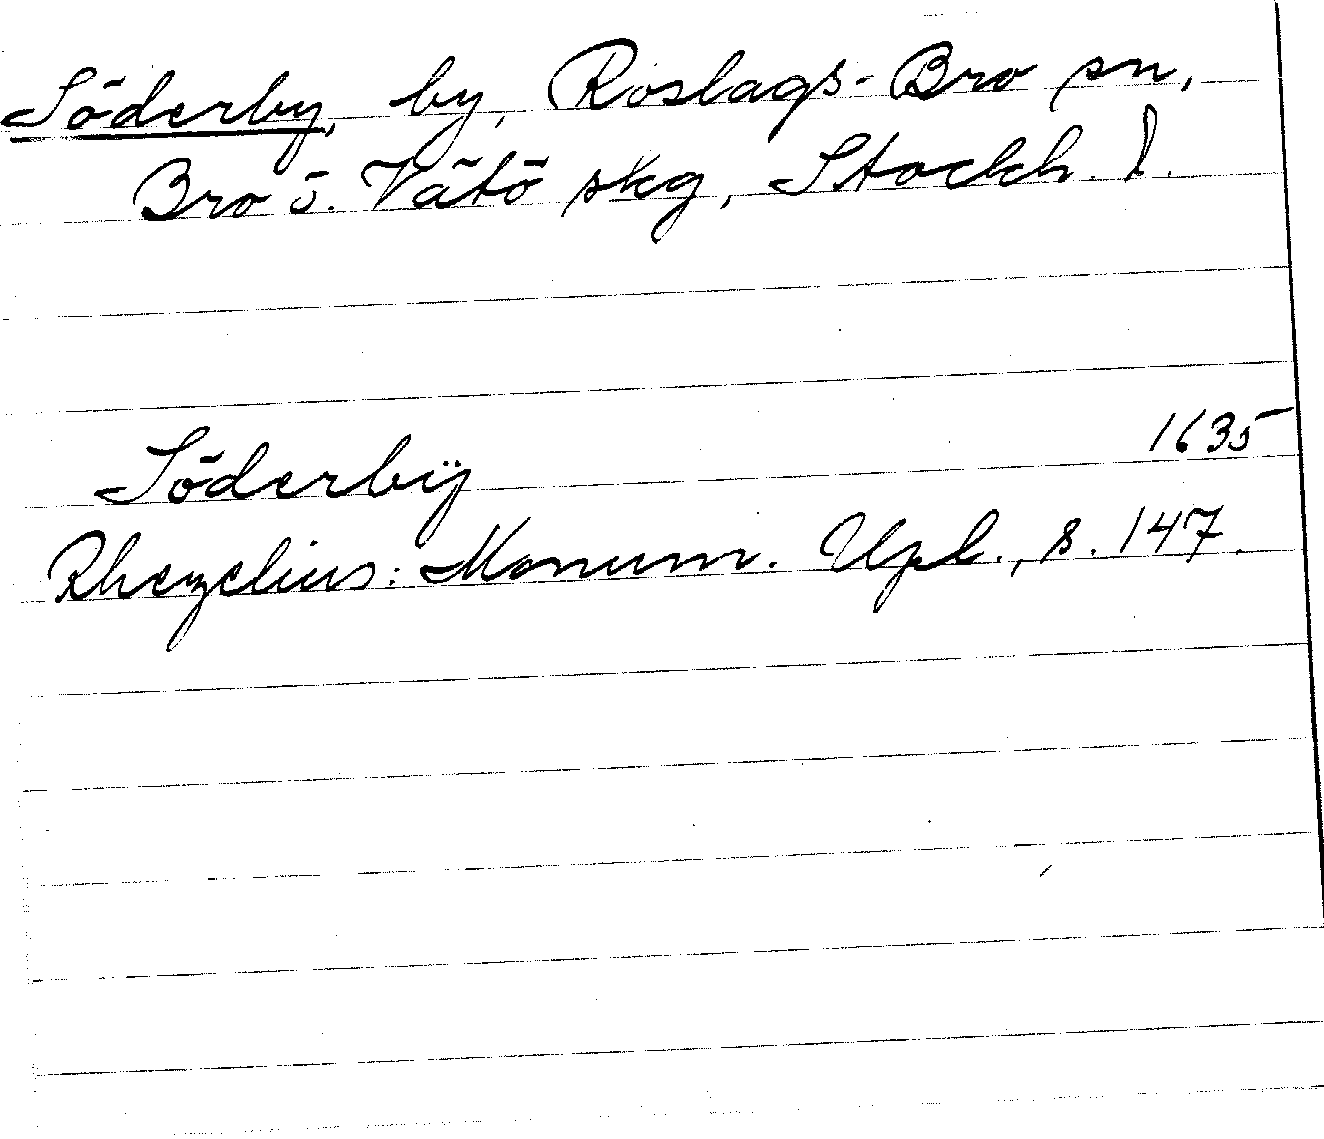 Söderby, by, Roslags-Bro sn,
Bro o. Vätö skg, Stockh. l.
Söderbÿ 1635
Rhezelius: Monum. Upl., s. 147.